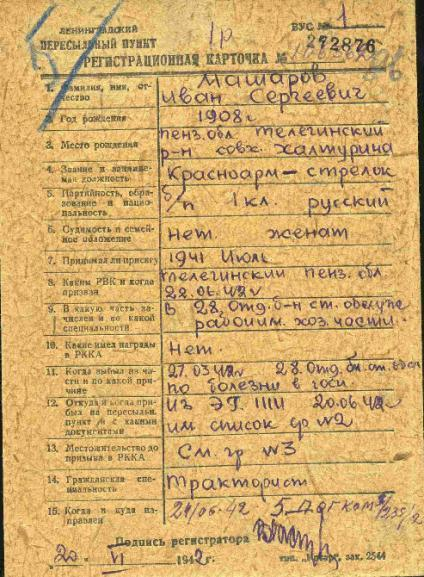 ЛЕНИНГРАДСКИЙ
ПЕРЕСЫЛЬНЫЙ ПУНКТ
1р
ВУС № 1
РЕГИСТРАЦИОННАЯ КАРТОЧКА №
272876
1. Фамилия, имя, отчество
Машаров
Иван Сергеевич
2. Год рождения
1908 г
3. Место рождения
Пенз. обл. Телегинский
р-н совх. Халтурина
4. Звание и занимаемая должность
Красноарм — стрелок
5. Партийность, образование и национальность
б/п 1 кл. русский
6. Судимость и семейное положение
Нет. женат
7. Принимал ли присягу
1941 Июль
8. Каким РВК и когда призван
Телегинский Пенз. обл
22.06.42г
9. В какую часть зачислен и по какой специальности
В 28. Отд. б-н ст. обслуж
рабочим хоз. части.
10. Какие имел награды в РККА
Нет.
11. Когда выбыл из части и по какой причине
27.03.42г 28. Отд. бн.
по болезни в госп
12. Откуда и когда прибыл на пересыльн. пункт и с какими документами
Из ЭГ 1111 20.06.42г
им список др №2
13. Местожительство до призыва в РККА
См. гр №3
14. Гражданская специальность
Тракторист
15. Когда и куда направлен
21/06.42
Подпись регистратора
20 VI 1942 г.
зак. 2544